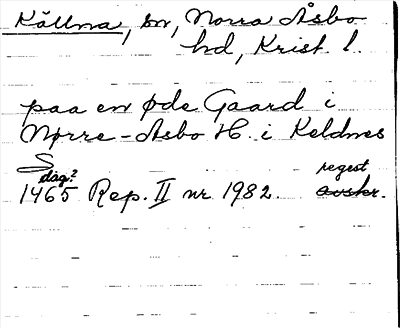 Källna, sn, Norra Åsbo
hd, Krist. l.
paa en øde Gaard i
Nørre-Asbo H. i Keldnes
S
dag? regest
1465 Rep. II nr 1982. avskr.